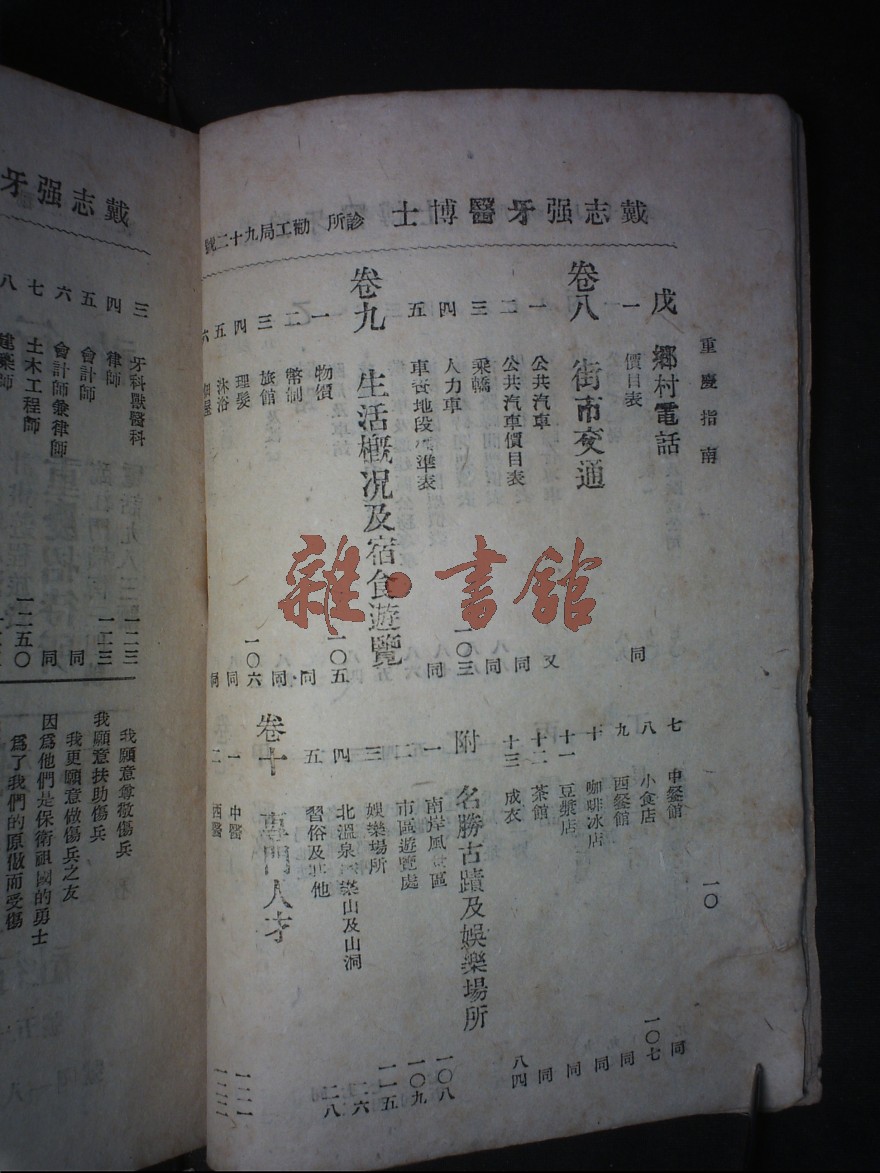 戴志强牙醫博士 診所 勸工局九十二號
重慶指南
一〇
戊 鄉村電話
一 價目表 同
卷八 街市交通
一 公共汽車 又
二 公共汽車價目表 同
三 乘轎 同
四 人力車 一〇三
五 車資地段標準表 同
卷九 生活概况及宿食遊覽
一 物價 一〇五
二 幣制 同
三 旅館 同
四 理髮 一〇六
五 沐浴 同
六 屋 同
七 中餐館 同
八 小食店 一〇七
九 西餐館 同
十 咖啡冰店 同
十一 豆漿店 同
十二 茶館 同
十三 成衣 八四
附 名勝古蹟及娛樂場所
一 南岸風景區 一〇八
二 市區遊覽處 一〇九
三 娛樂場所 一一五
四 北溫泉 山及山洞 二六
五 習俗及其他 二八
卷十 專門人才
一 中醫 一二一
二 西醫 一二二
戴志强牙
三 牙科獸醫科 一二三
四 律師 一二三
五 會計師 同
六 會計師兼律師 同
七 土木工程師 一二五〇
八 建築師
我願意尊敬傷兵
我願意扶助傷兵
我更願意做傷兵之友
因爲他們是保衛祖國的勇士
爲了我們的原做而受傷
雜·書館